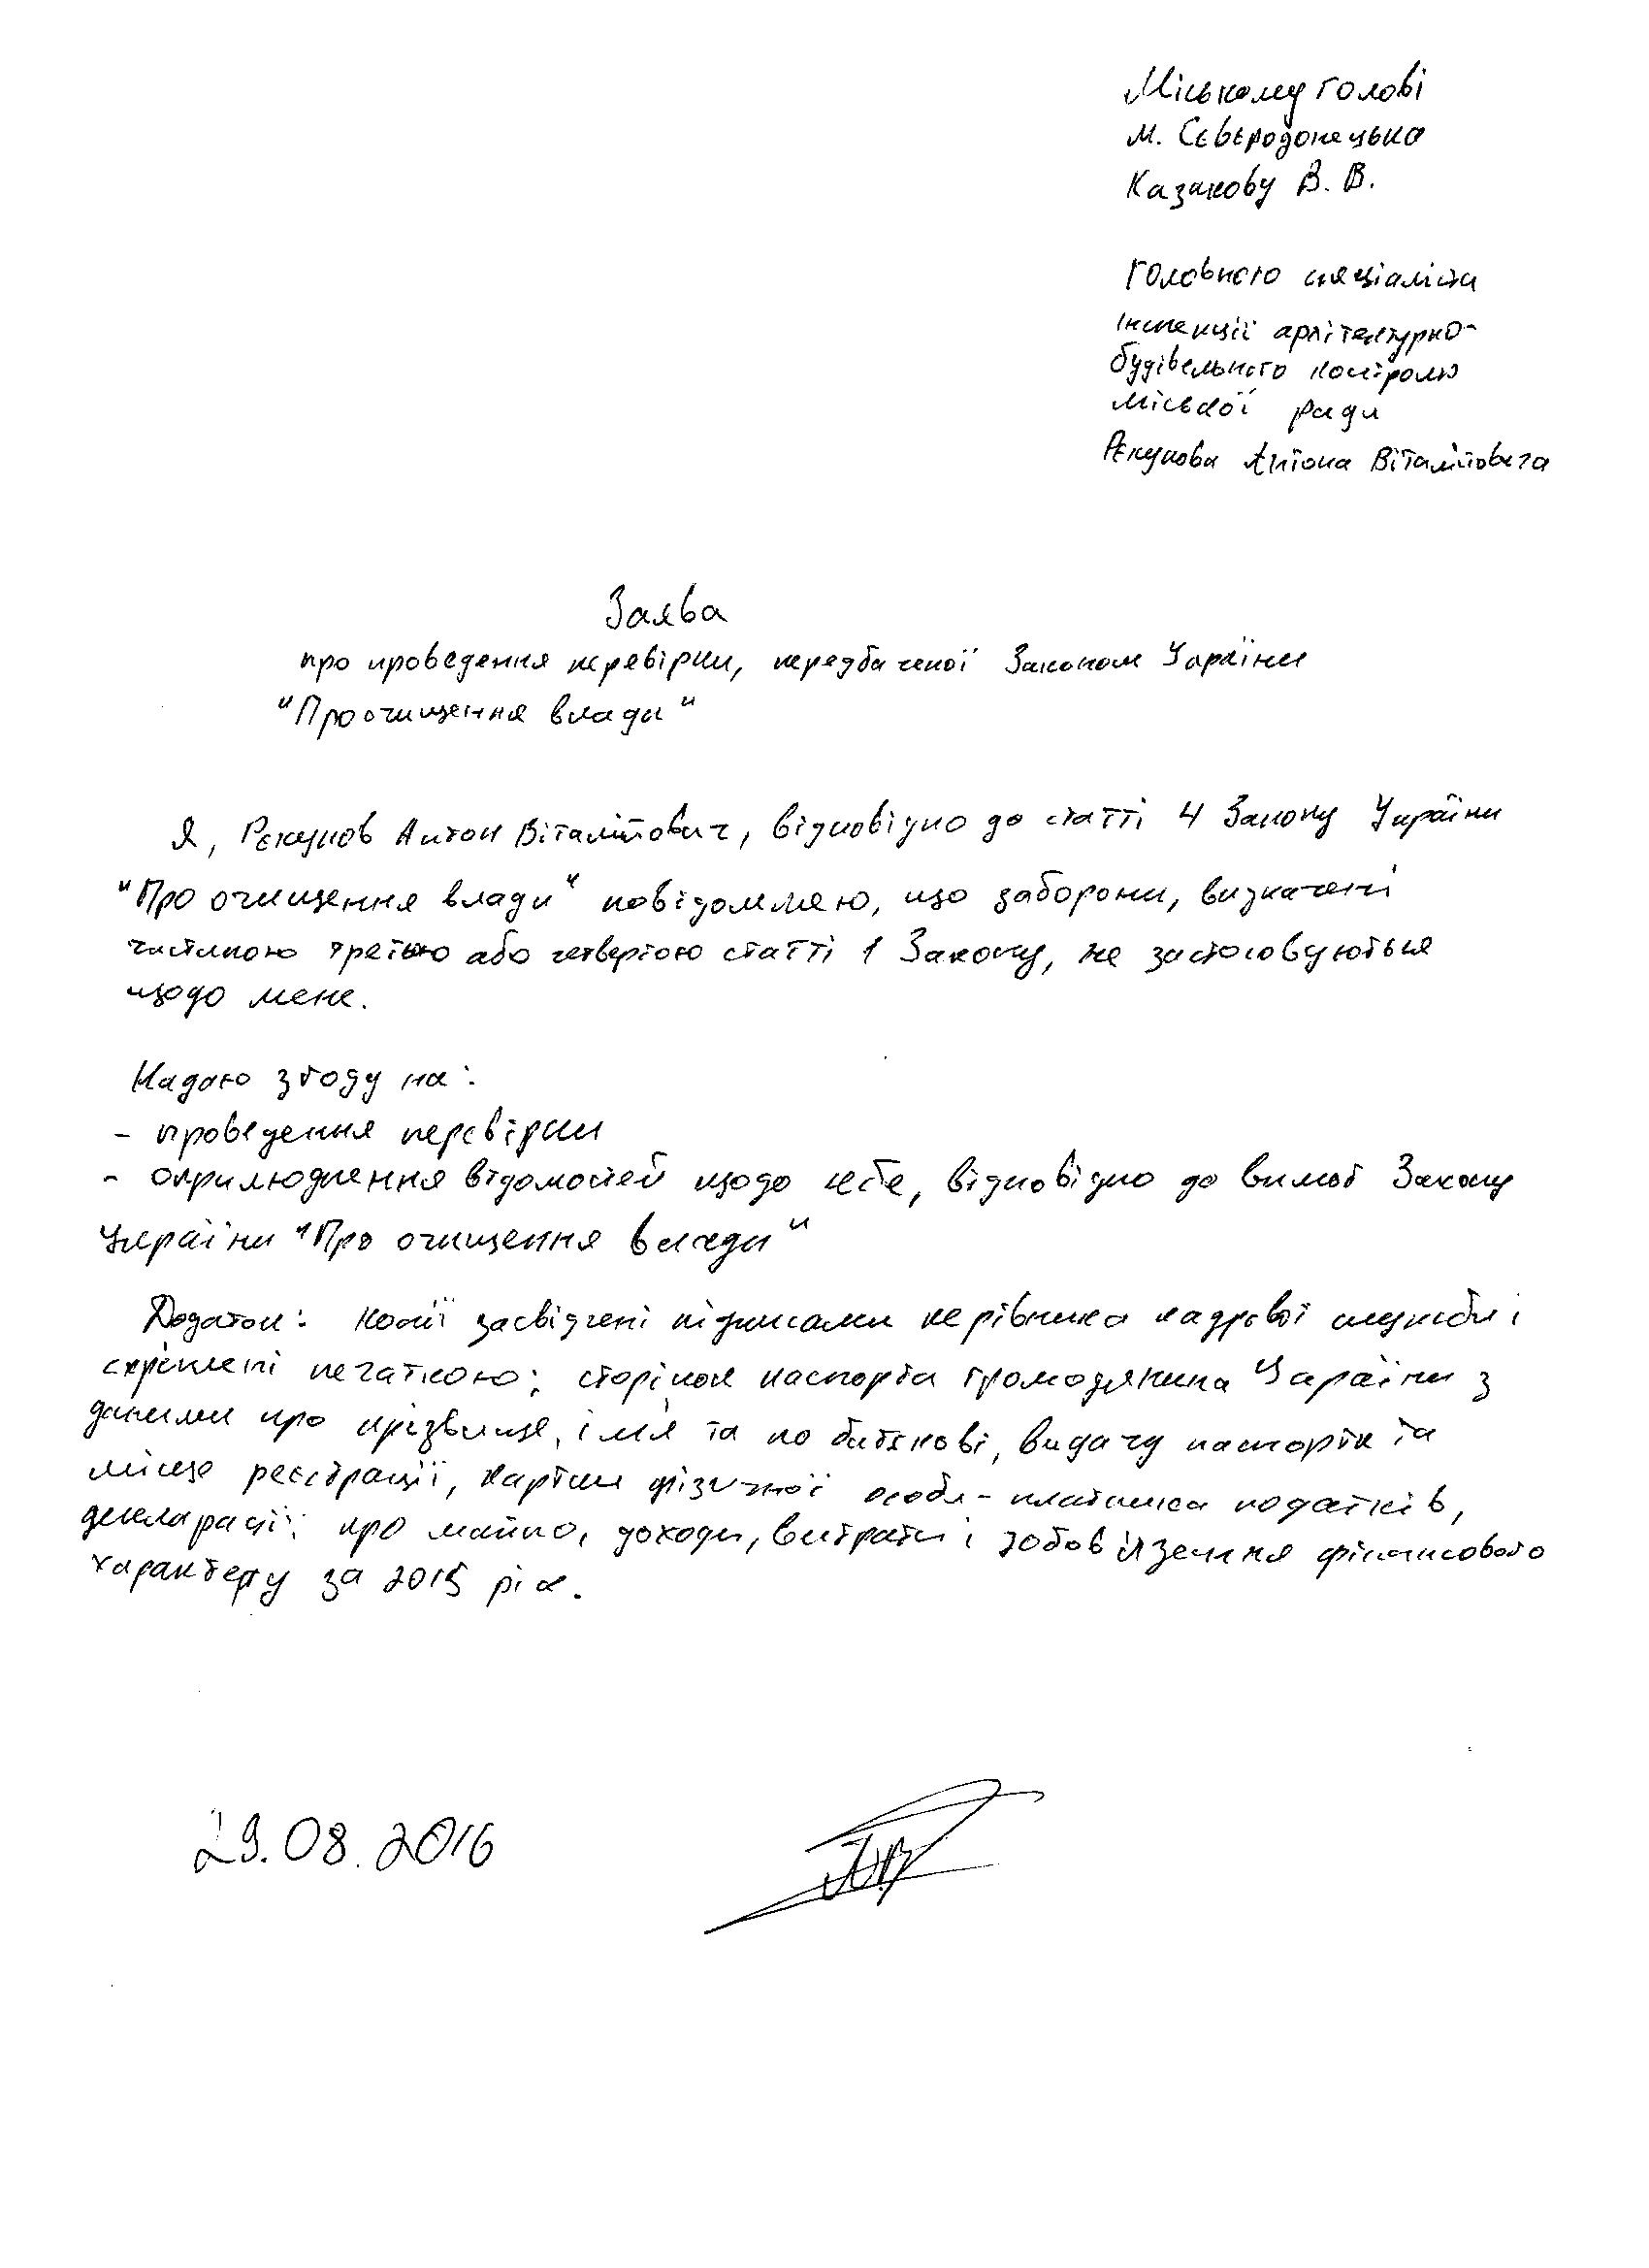 Міському голові
м. Сєвєродонецька
Казакову В. В.
Головного спеціаліста
інспекції архітектурно-
будівельного контролю
міської ради
Рєкунова Антона Віталійовича
Заява
про проведення перевірки, передбаченої Законом України
"Про очищення влади"
Я, Рєкунов Антон Віталійович, відповідно до статті 4 Закону України
"Про очищення влади" повідомляю, що заборони, визначені
частиною третьою або четвертою статті 1 Закону, не застосовуються
щодо мене.
Надаю згоду на:
- проведення перевірки
- оприлюднення відомостей щодо себе, відповідно до вимог Закону
України "Про очищення влади"
Додаток: копії засвідчені підписами керівника кадрової служби і
скріплені печаткою: сторінок паспорта громадянина України з
даними про прізвище, ім'я та по батькові, видачу паспорта та
місце реєстрації, картки фізичної особи-платника податків,
декларації: про майно, доходи, витрати і зобов'язання фінансового
характеру за 2015 рік.
29.08.2016